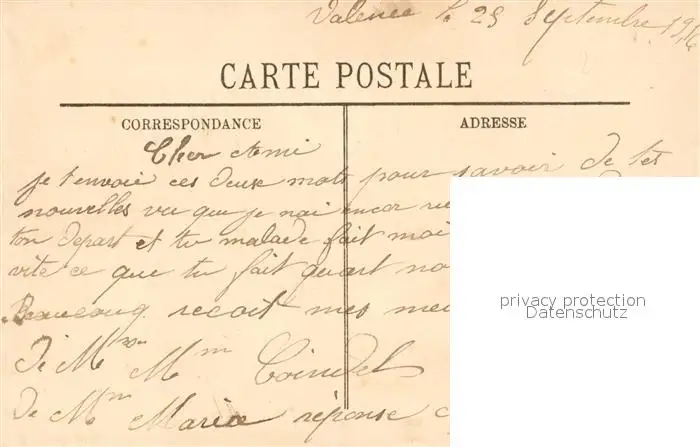 Valence le 25 Septembre 1916
CARTE POSTALE
CORRESPONDANCE
ADRESSE
Cher Ami
je t'envoie ces deux mots pour savoir de tes
nouvelles vu que je nai encor
ton depart et tu malade fait moi
vite ce que tu fait quant no
Beaucoug recoit mes
de Mme Mm Coindet
de Mm Maria réponse
privacy protection
Datenschutz